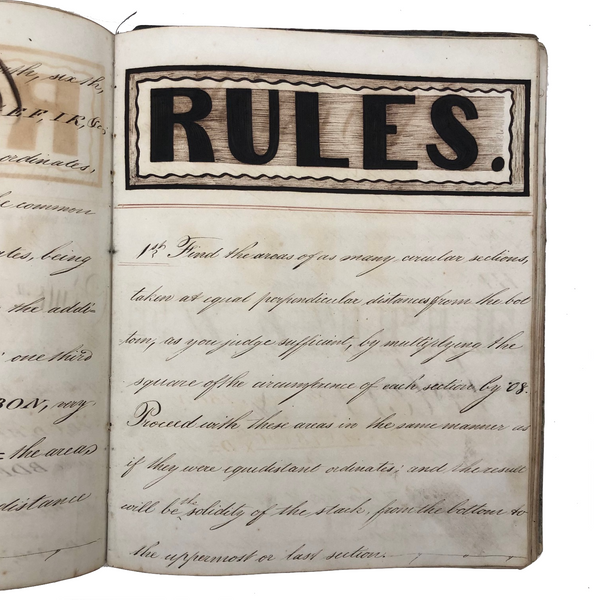 th, sixth,
EF, IK, &c.
ordinates,
e common
tes, being
the addi-
one third
BON, very
= the area
distance
RULES.
1st. Find the areas of as many circular sections,
taken at equal perpendicular distances from the bot
tom, as you judge sufficient, by multiplying the
square of the circumference of each section by '08.
Proceed with these areas in the same manner as
if they were equidistant ordinates; and the result
will be the solidity of the stack, from the bottom to
the uppermost or last section.